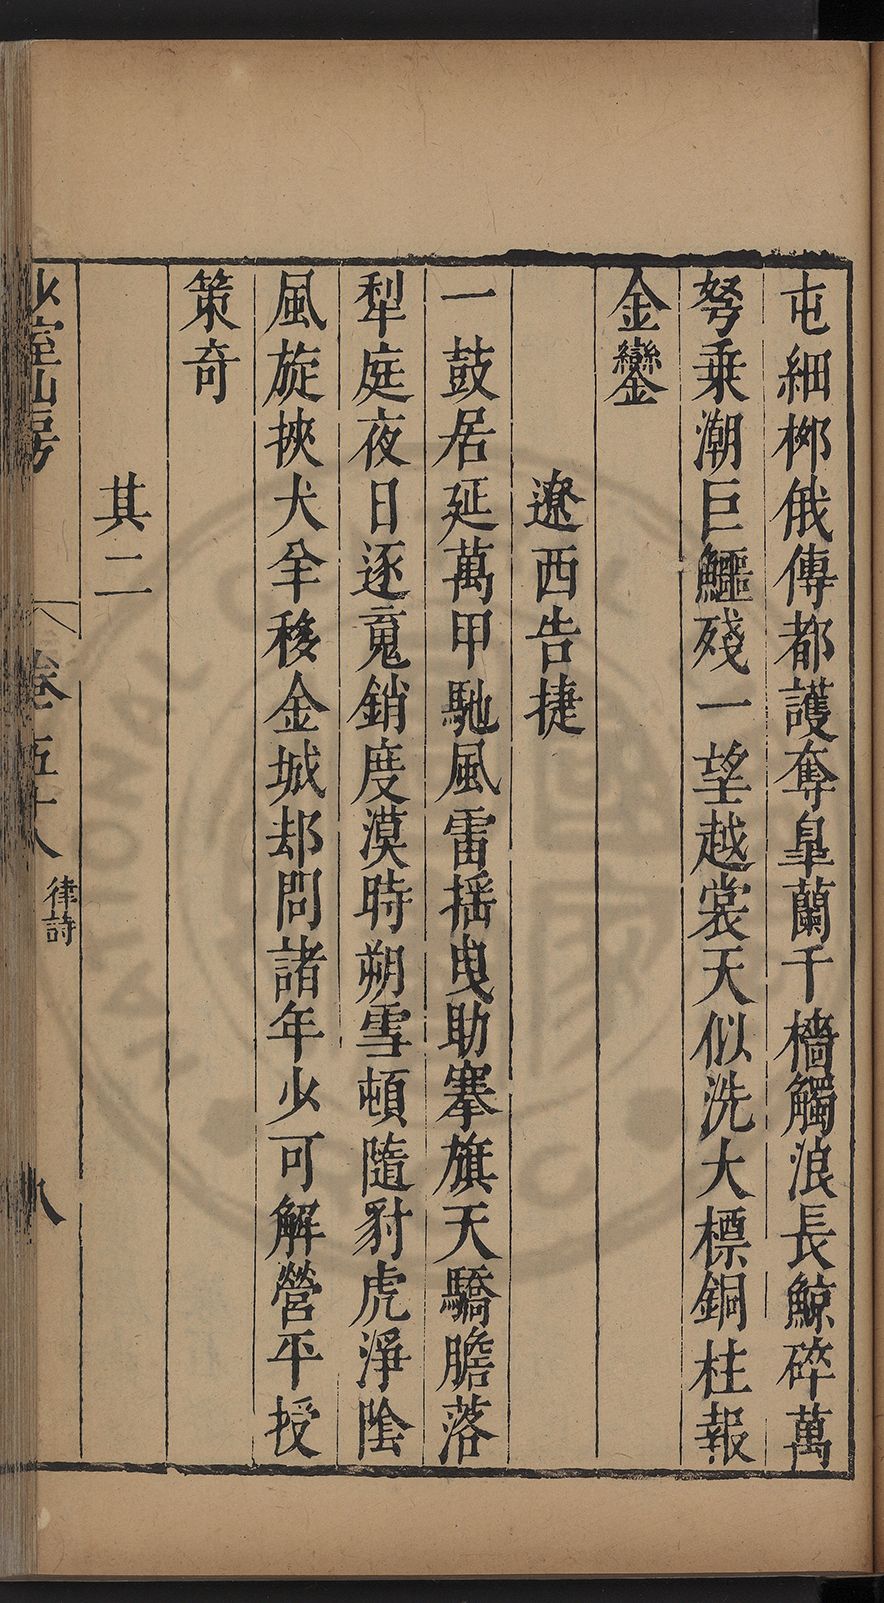 屯細桞俄傳都護奪臯蘭千檣觸浪長鯨碎萬
弩乗潮巨鱷殘一望越裳天似洗大標銅柱報
金鑾
遼西告捷
一鼓居延萬甲馳風雷揺曳助搴旗天驕膽落
犁庭夜日逐䰟銷度漠時朔雪頓隨豺虎淨陰
風旋挾犬羊移金城却問諸年少可解營平授
策奇
其二
少室山房
卷之五十八
律詩
八